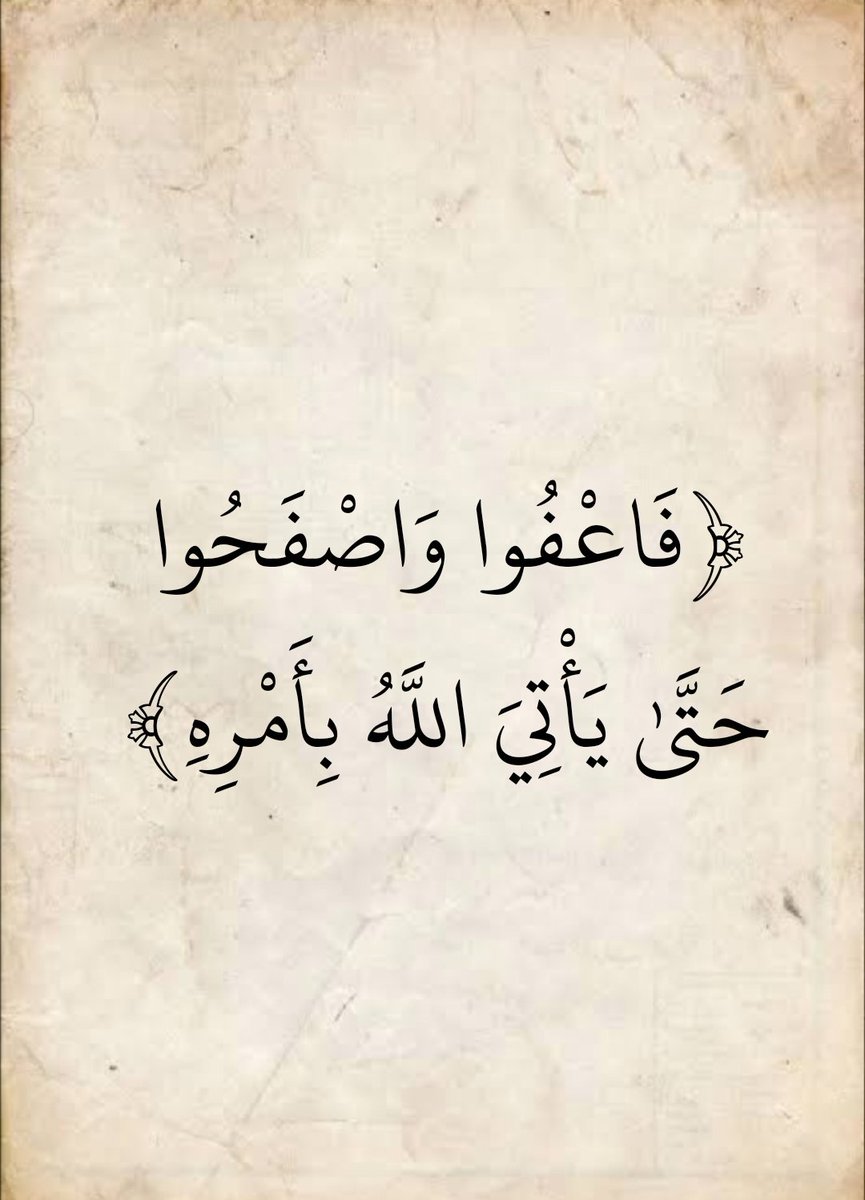 ﴿فَاعْفُوا وَاصْفَحُوا
حَتَّىٰ يَأْتِيَ اللَّهُ بِأَمْرِهِ﴾